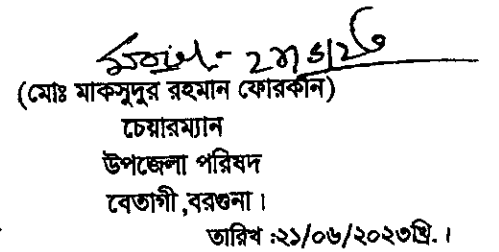 (মোঃ মাকসুদুর রহমান ফোরকান)
চেয়ারম্যান
উপজেলা পরিষদ
বেতাগী ,বরগুনা।
তারিখ :২১/০৬/২০২৩খ্রি.।